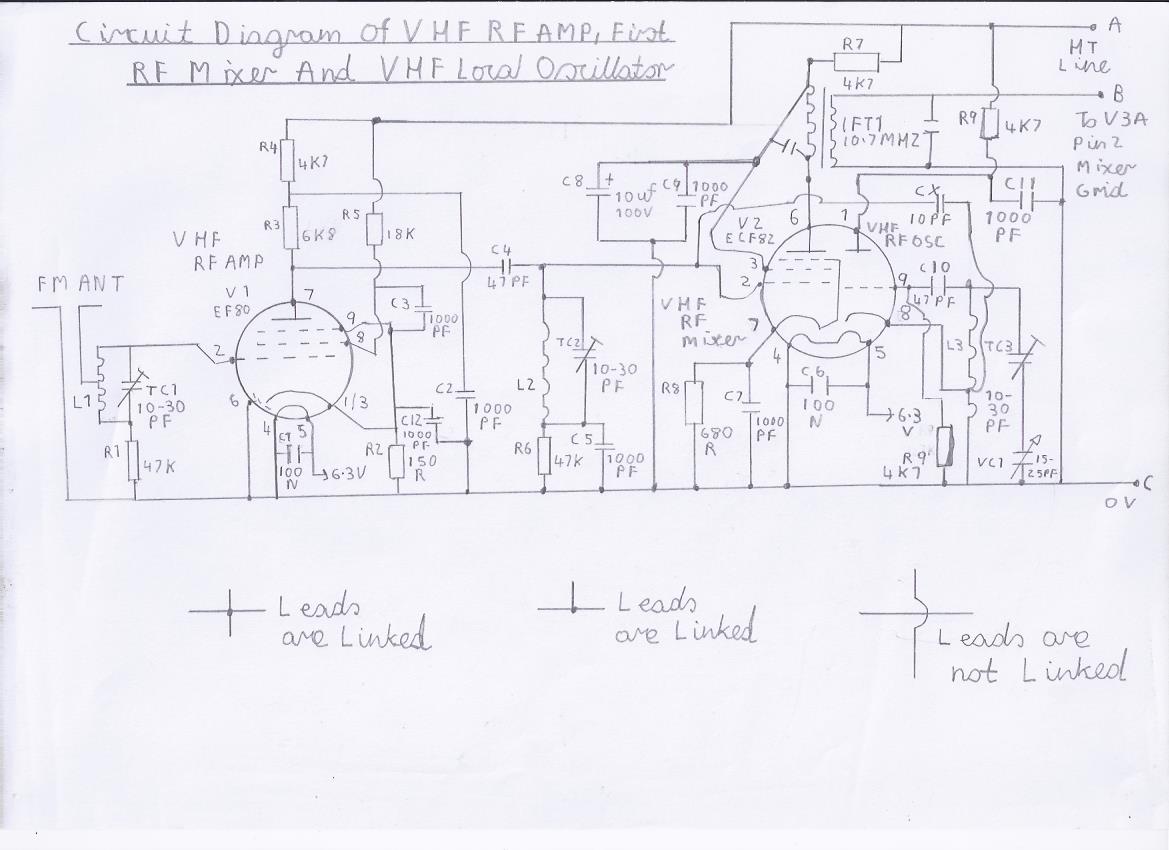 Circuit Diagram Of VHF RF AMP, First
RF Mixer And VHF Local Oscillator
A
HT
Line
B
To V3A
Pin 2
Mixer
Grid
R7
4K7
IFT1
10.7MHZ
R9
4K7
R4
4K7
R3
6K8
R5
18K
C8
+
10uf
100V
C9
1000
PF
CX
10PF
C11
1000
PF
VHF
RF AMP
V1
EF80
7
9
8
2
6
4
5
1/3
FM ANT
L1
TC1
10-30
PF
R1
47K
C3
1000
PF
C4
47PF
C2
1000
PF
C12
1000
PF
R2
150
R
100
N
6.3V
TC2
10-30
PF
L2
R6
47K
C5
1000
PF
V2
ECF82
6
1
VHF
RF OSC
3
2
9
8
7
4
5
VHF
RF
Mixer
C10
47PF
L3
TC3
10-
30
PF
R8
680
R
C7
1000
PF
C6
100
N
6.3
V
R9
4K7
VC1
15-
25PF
C
0V
Leads
are Linked
Leads
are Linked
Leads are
not Linked